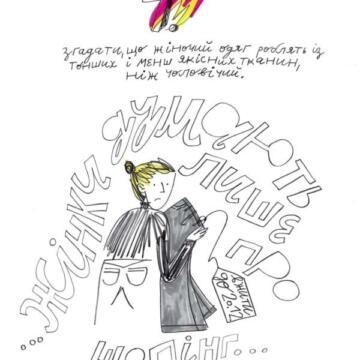 7.
згадати, що жіночий одяг роблять із
тонших і менш якісних тканин,
ніж чоловічий.
...жінки думають лише про
шопінг...